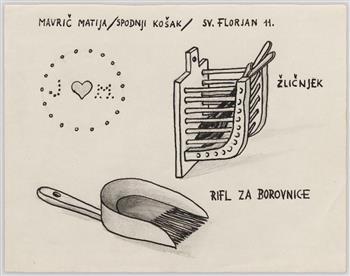 MAVRIČ MATIJA/SPODNJI KOŠAK/ SV. FLORJAN 11.
J M.
ŽLIČNJEK
RIFL ZA BOROVNICE